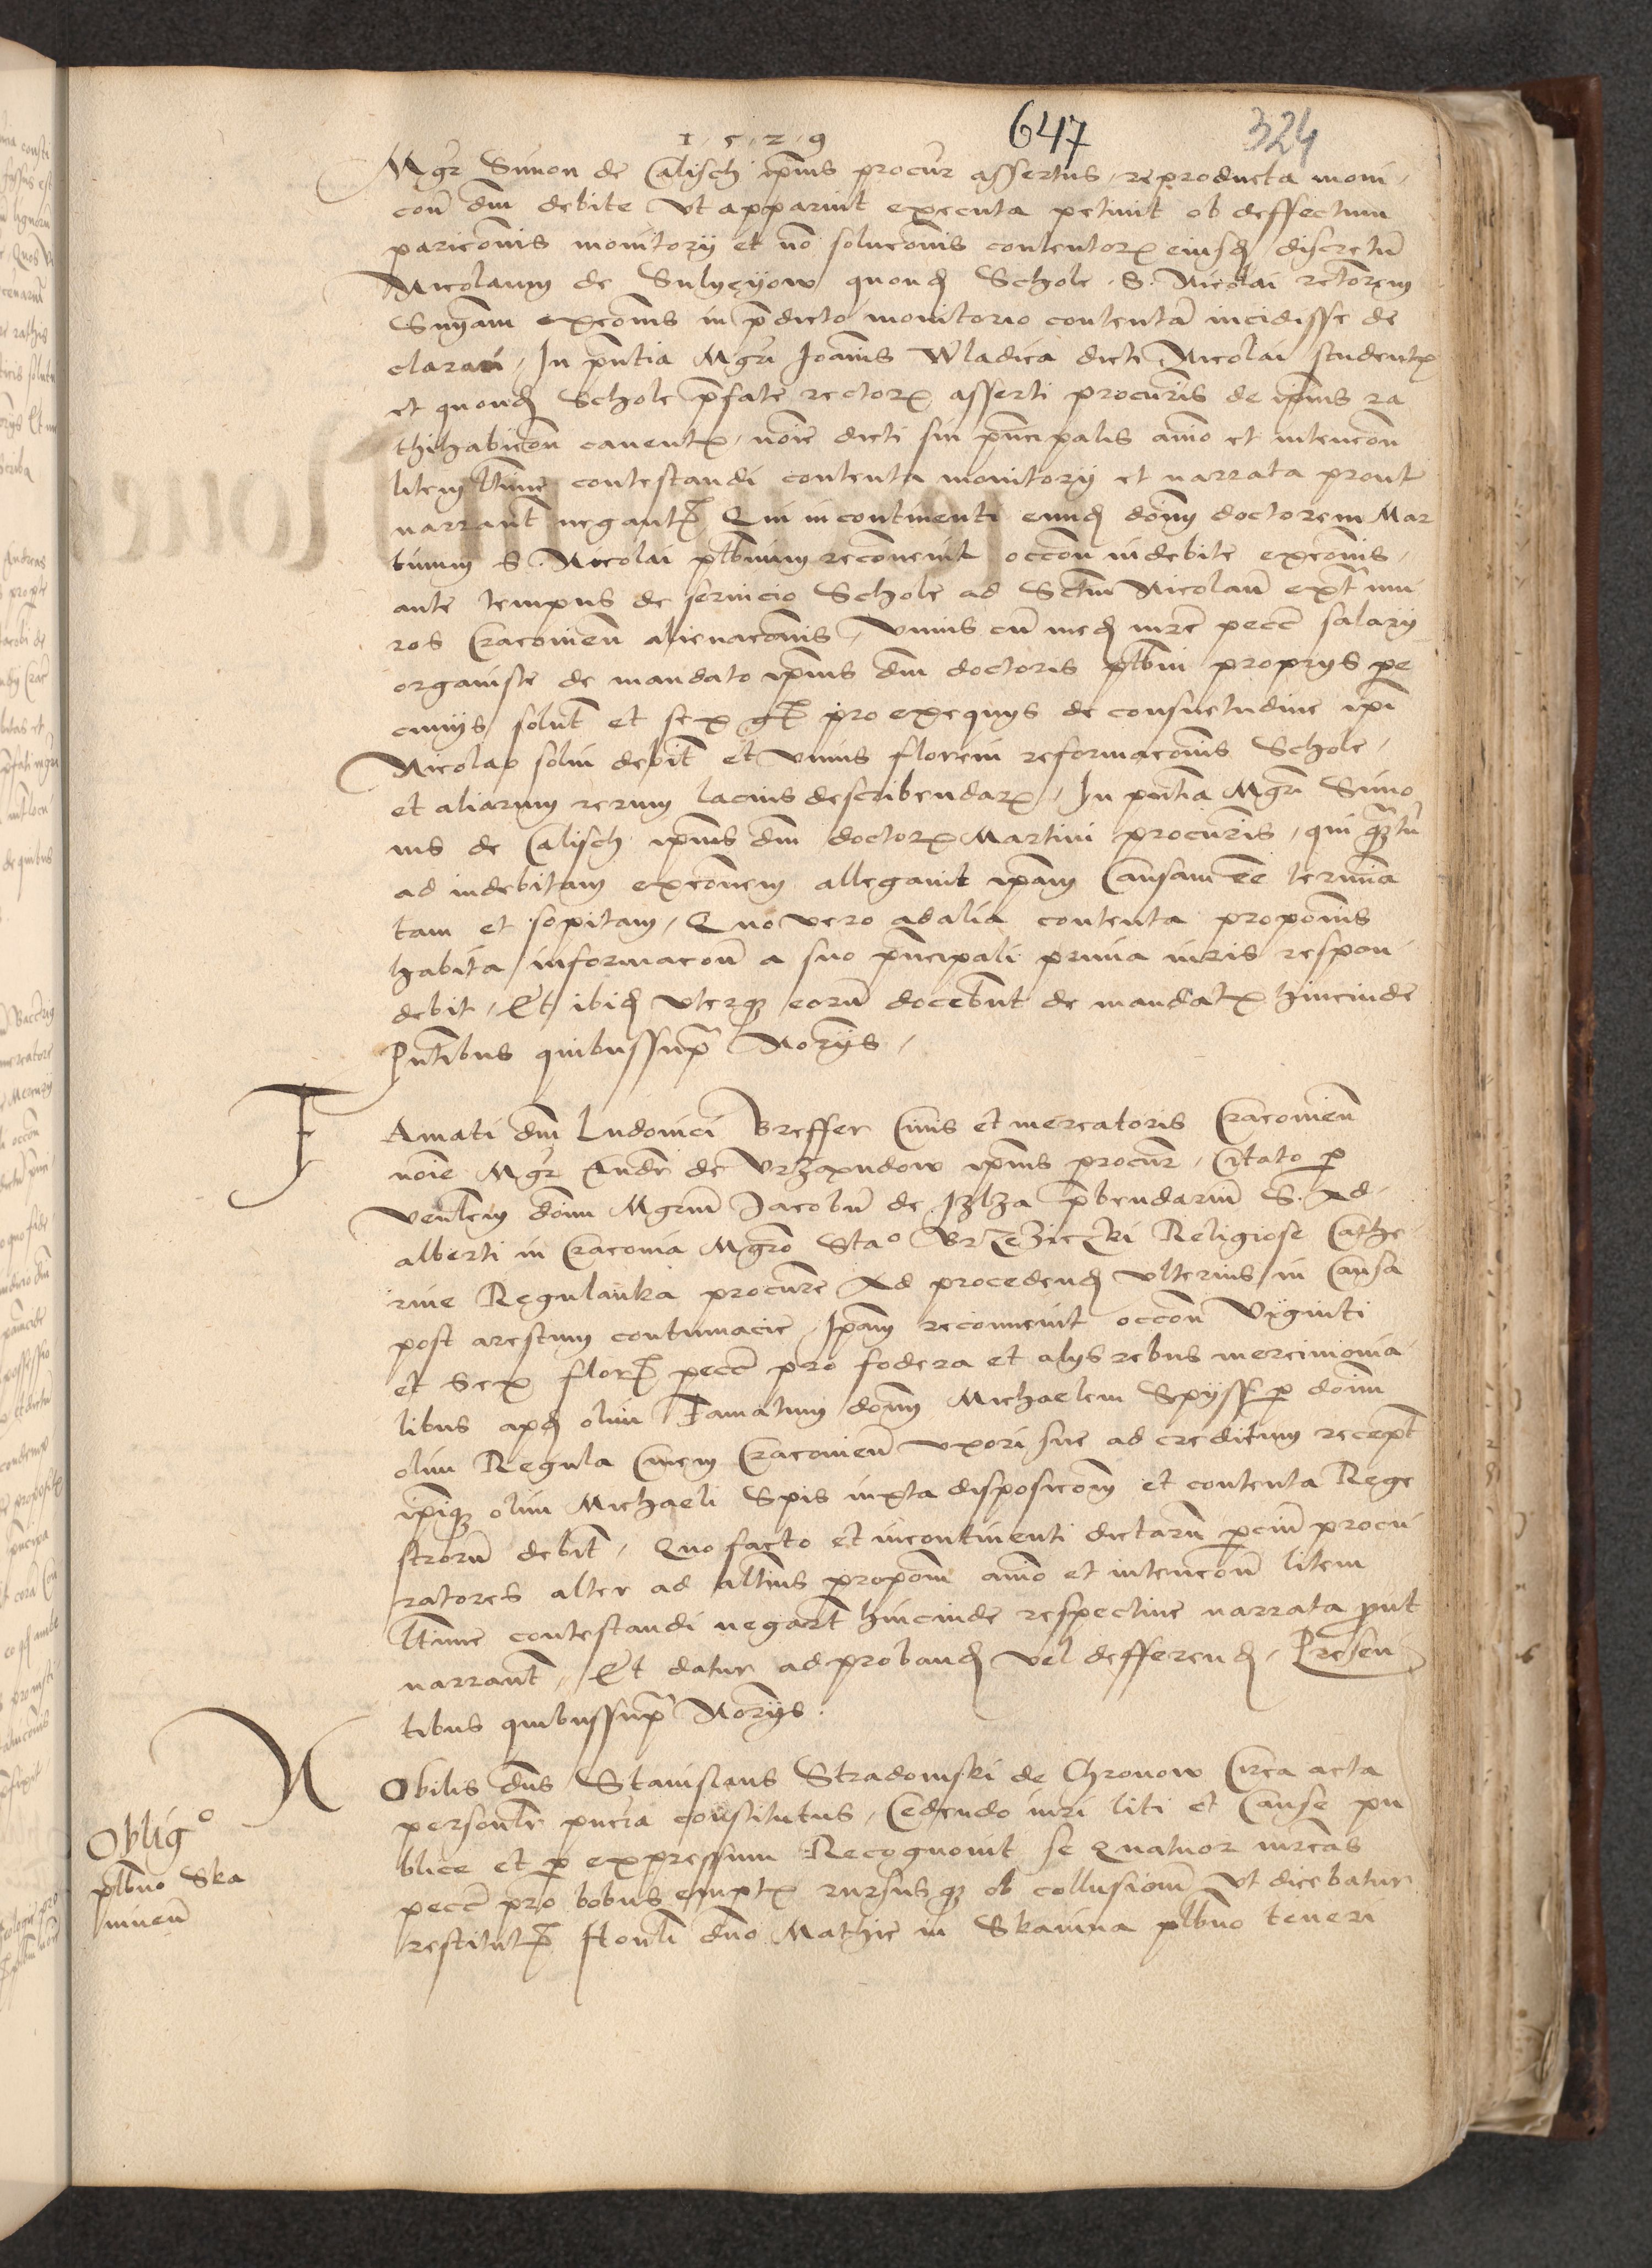 1 5 2 9
647
324
Mgr Simon de Calisch ipius procur assertus, reproducta moni,
coñ dni debite vt apparuit executa petiuit ob deffectum
paricõnis monitorij et nõ solucõnis contentorꝝ eiusdẽ discretũ
Nicolaum de Sulyeyow quondẽ Schole S. Nicolai rectorem
Snỹam excõnis in p̃dicto monitorio contentã incidisse de
clarari, In pñtia Mgri Joañis Wladica dicti Nicolai studentꝭ
et quondẽ Schole p̃fate rectorꝭ asserti procuris de ipius ra
thihabicõe cauentꝭ, noĩe dicti sui pñcipalis aĩo et intencõn
litem ltĩme contestandi contenta monitorij et narrata prout
narrant̃ negantꝭ Qui incontinenti eundẽ dom̃ doctorem Mar
tinum S. Nicolai plb̃num reconuenit occõn indebite excõnis,
ante tempus de seruicio Schole ad Sctm̃ Nicolaũ extᷓ mu
ros Cracouieñ alienacõnis, vnius cũ medẽ mrce pecc̃ salarij
organiste de mandato ipius dni doctoris plb̃ni proprijs pe
cunijs solut̃ et sex gꝭ pro exequijs de consuetudine ipi
Nicolao solui debit̃ et vnius floreni reformacõnis Schole,
et aliarum rerum lacius describendarꝝ, In pñtia Mgri Simo
nis de Calisch ipius dni doctorꝭ Martini procuris, qui qᷓꝫtũ
ad indebitam excõnem allegauit ipam Causam eẽ termina
tam et sopitam, Quo vero ad alia contenta propõnis
habita informacõn a suo pñcipali prima iuris respon
debit, Et ibidẽ vterqꝫ eorũ docebũt de mandatꝭ hincinde
Pñtibus quibussup̃ Norijs,
F
Amati dni Ludouici Breffer Ciuis et mercatoris Cracouieñ
noĩe Mgr Andr̃ de Vrząndow ipius procur, Citato p
veñlem dom̃ Mgrum Jacobũ de Iłża p̃bendariũ S. Ad
alberti in Cracouia Mgro Stao Brzezieczki Religiose Cathe
rine Regulanka procure Ad procedendẽ vlterius in Causa
post arestum contumacie, Ipam reconuenit occõn Viginti
et Sex florꝭ pecc̃ pro fodera et alijs rebus mercimonia
libus apdẽ olim Famatum dom̃ Michaelem Spyss p dom̃
olim Regula Ciuem Cracouieñ vxori sue ad creditum recept̃
ipiqꝫ olim Michaeli Spis iuxta disposicõm et contenta Rege
strorũ debit̃, Quo facto et incontinenti dictarũ pciũ procu
ratores alter ad alterius propõm aĩo et intencõn litem
ltĩme contestandi negarũt hincinde respectiue narrata put
narrant̃, Et datur ad probandẽ vel defferendẽ, Presen
tibus quibussup̃ Norijs.
Oblig°
plb̃no Ska
uineñ
N
Obilis dns Stanislaus Stradomski de Chronow Circa acta
personlr pñcia constitutus, Cedendo iuri liti et Cause pu
blice et p expressum Recognouit se Quatuor mrcas
pecc̃ pro bobus emptꝭ rursusqꝫ ob collusioñ vt dicebatur
restitutꝭ Honli dno Mathie in Skauina plb̃no teneri